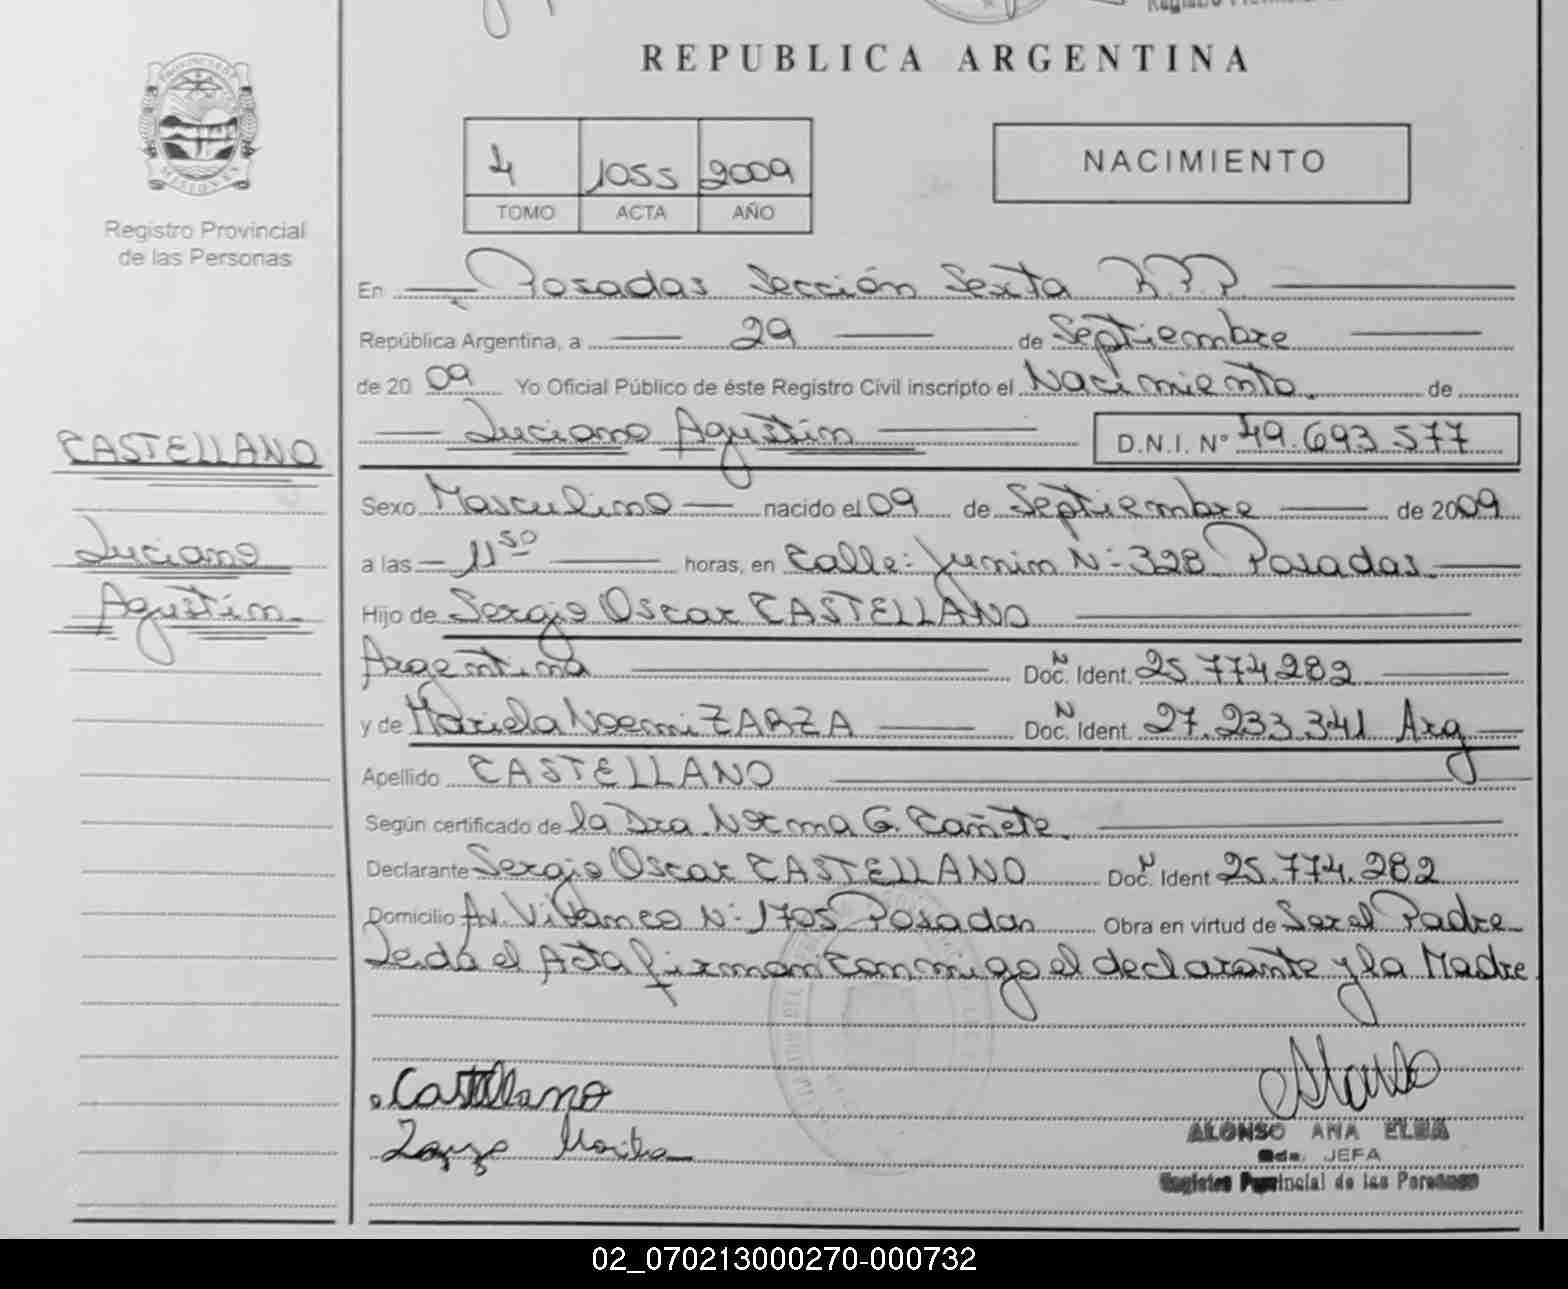 REPUBLICA ARGENTINA
PROVINCIA DE
MISIONES
Registro Provincial
de las Personas
4 1055 2009
TOMO ACTA AÑO
NACIMIENTO
En Posadas Sección Sexta R.P.P.
República Argentina, a 29 de Septiembre
de 2009 Yo Oficial Público de éste Registro Civil inscripto el Nacimiento. de
Luciano Agustin D.N.I. N° 49.693.577
CASTELLANO
Luciano
Agustin.
Sexo Masculino nacido el 09 de Septiembre de 2009
a las 11 50 horas, en Calle: Junin N: 328 Posadas.
Hijo de Sergio Oscar CASTELLANO
Argentina Doc. N Ident. 25.774.282
y de Mariela Noemi ZARZA Doc. N Ident. 27.233.341 Arg
Apellido CASTELLANO
Según certificado de la Dra. Norma G. Cañete.
Declarante Sergio Oscar CASTELLANO Doc. N Ident 25.774.282
Domicilio Av. Vivanco N: 1705 Posadas Obra en virtud de Ser el Padre
Leida el Acta firman conmigo el declarante y la Madre.
Castellano
Zarza
ALONSO ANA ELBA
JEFA
Registro Provincial de las Personas
02_070213000270-000732